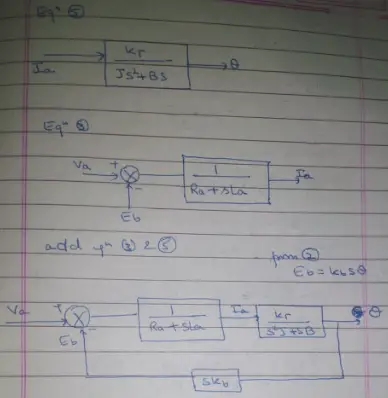 Eqⁿ ⑤
Ia
KT
JS²+BS
θ
Eqⁿ ③
Va
+
-
Eb
1
Ra+SLa
Ia
add ③ & ⑤
from ②
Eb = KbSθ
Va
+
-
Eb
1
Ra+SLa
Ia
KT
S²J+SB
θ
SKb